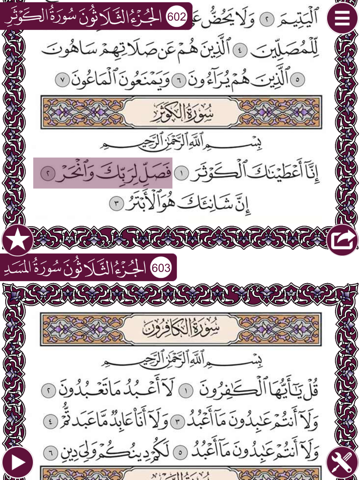 الجُزْءُ الثَّلَاثُونَ سُورَةُ الكَوْثَرِ 602
ٱلْيَتِيمَ ٢ وَلَا يَحُضُّ
لِّلْمُصَلِّينَ ٤ ٱلَّذِينَ هُمْ عَن صَلَاتِهِمْ سَاهُونَ
٥ ٱلَّذِينَ هُمْ يُرَآءُونَ ٦ وَيَمْنَعُونَ ٱلْمَاعُونَ ٧
سُورَةُ الكَوْثَرِ
بِسْمِ ٱللَّهِ ٱلرَّحْمَٰنِ ٱلرَّحِيمِ
إِنَّآ أَعْطَيْنَٰكَ ٱلْكَوْثَرَ ١ فَصَلِّ لِرَبِّكَ وَٱنْحَرْ ٢
إِنَّ شَانِئَكَ هُوَ ٱلْأَبْتَرُ ٣
الجُزْءُ الثَّلَاثُونَ سُورَةُ المَسَدِ 603
سُورَةُ الكَافِرُونَ
بِسْمِ ٱللَّهِ ٱلرَّحْمَٰنِ ٱلرَّحِيمِ
قُلْ يَٰٓأَيُّهَا ٱلْكَٰفِرُونَ ١ لَآ أَعْبُدُ مَا تَعْبُدُونَ ٢
وَلَآ أَنتُمْ عَٰبِدُونَ مَآ أَعْبُدُ ٣ وَلَآ أَنَا۠ عَابِدٌ مَّا عَبَدتُّمْ ٤
وَلَآ أَنتُمْ عَٰبِدُونَ مَآ أَعْبُدُ ٥ لَكُمْ دِينُكُمْ وَلِىَ دِينِ ٦